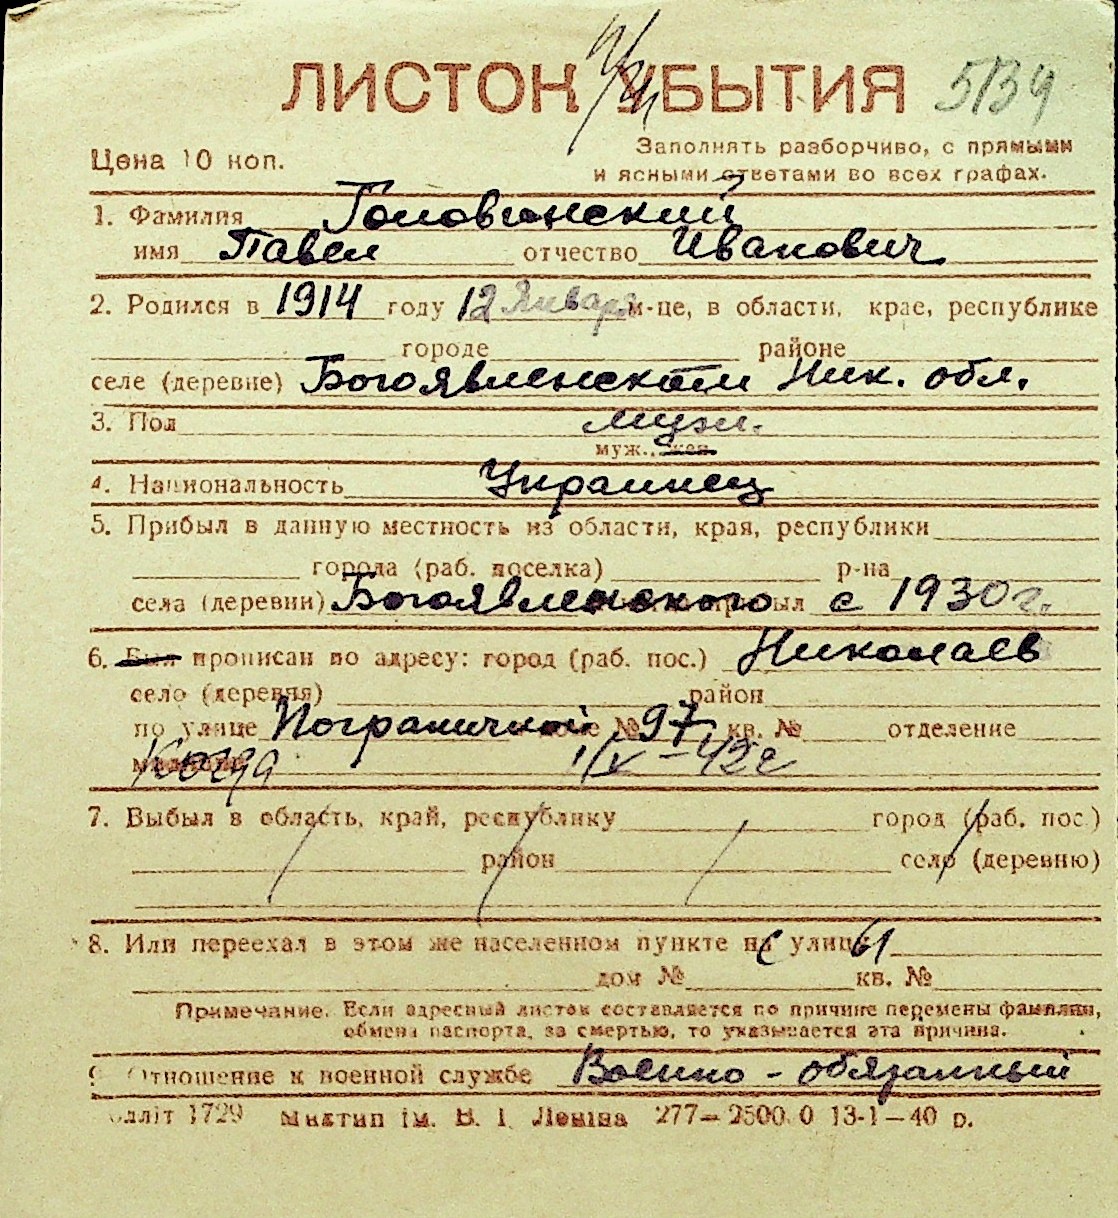 ЛИСТОК УБЫТИЯ 5134
Цена 10 коп.
Заполнять разборчиво, с прямыми
и ясными ответами во всех графах.
1. Фамилия Головинский
имя Павел отчество Иванович
2. Родился в 1914 году 12 Января м-це, в области, крае, республике
городе районе
селе (деревне) Богоявленском Ник. обл.
3. Пол муж.
муж., жен.
4. Национальность Украинец
5. Прибыл в данную местность из области, края, республики
города (раб. поселка) р-на
села (деревни) Богоявленского прибыл с 1930 г.
6. Был прописан по адресу: город (раб. пос.) Николаев
село (деревня) район
по улице Пограничной № 97 кв. № отделение
милиции Когда 1/V-42г
7. Выбыл в область, край, республику город (раб. пос.)
район село (деревню)
8. Или переехал в этом же населенном пункте на улицу 61
дом № кв. №
Примечание. Если адресный листок составляется по причине перемены фамилии,
обмена паспорта, за смертью, то указывается эта причина.
9. Отношение к военной службе Военно-обязанный
лліт 1729 Миктип ім. В. І. Леніна 277—2500.0 13-1-40 р.